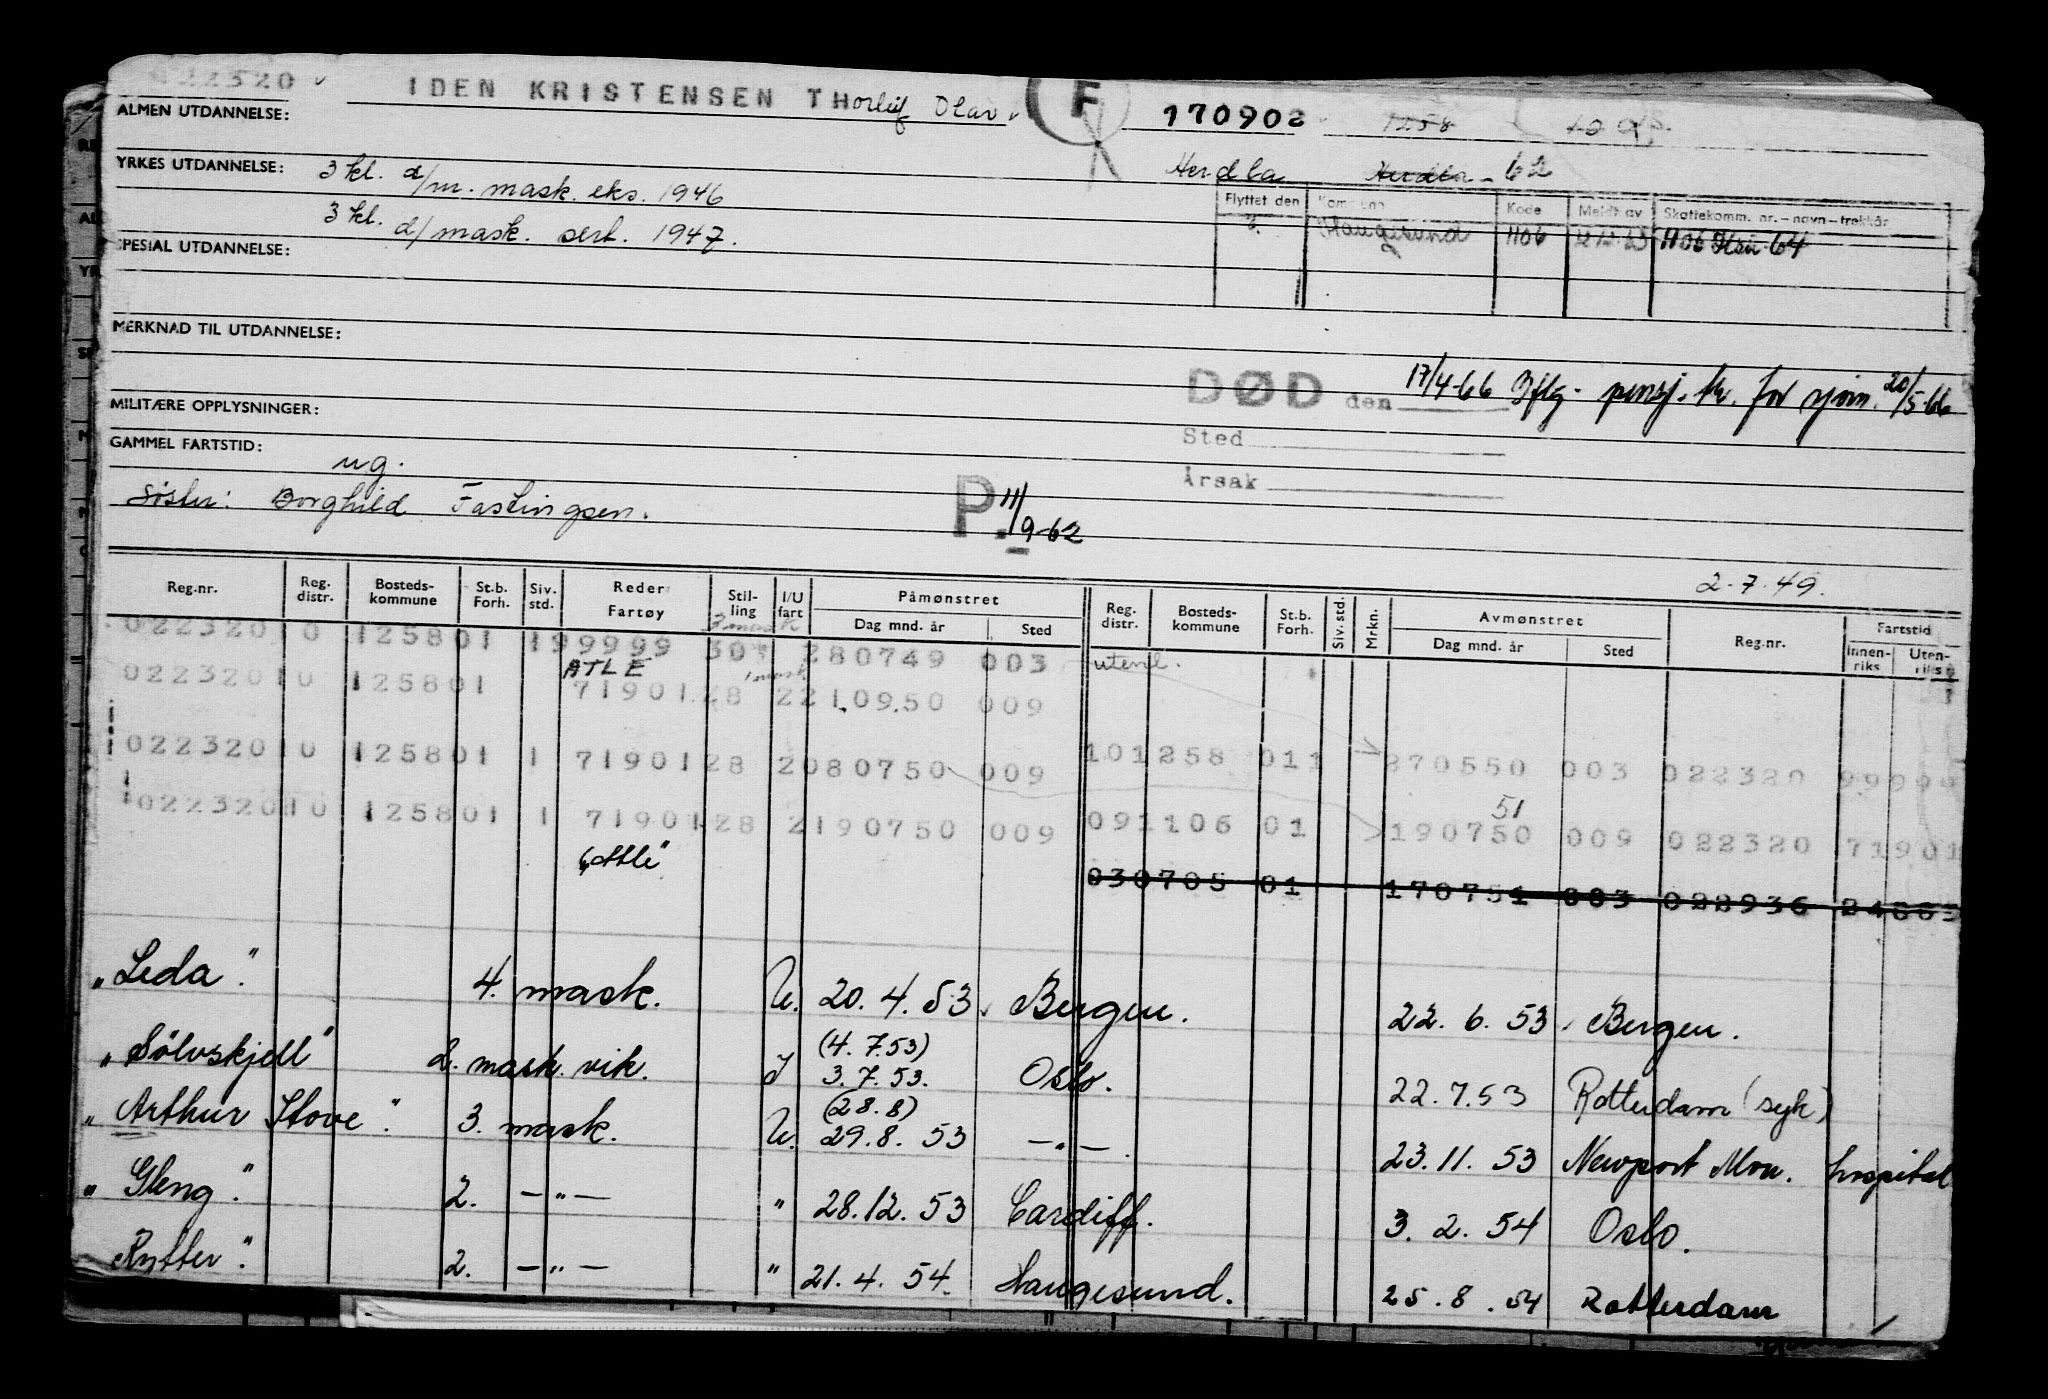 022320 IDEN KRISTENSEN THorleif Olav F 170902 1258
ALMEN UTDANNELSE:
YRKES UTDANNELSE: 3 kl. d/m. mask. eks. 1946 Herdla Herdla - 62
3 kl. d/mask. sert. 1947.
Flyttet den Kommune Kode Meldt av Skattekomm. nr. – navn – trekkår
Haugesund 1106 1106 Hsu 64
SPESIAL UTDANNELSE:
MERKNAD TIL UTDANNELSE:
DØD den 17/4-66 Iflg. pensj. tr. for sjøm. 20/5-66
MILITÆRE OPPLYSNINGER:
Sted
GAMMEL FARTSTID:
ug.
Årsak
Søster: Borghild Fastingsen.
P. 11/9-62
2.7.49.
Reg.nr. Reg. distr. Bosteds-kommune St.b. Forh. Siv. std. Reder Fartøy Stilling I/U fart Påmønstret Dag mnd. år Sted Reg. distr. Bosteds-kommune St.b. Forh. Siv. std. Mrkn. Avmønstret Dag mnd. år Sted Reg.nr. Fartstid Innen-riks Uten-riks
3 mask
022320 10 1258 01 1 99999 30 280749 003 utenl.
ATLE 1 mask
022320 10 1258 01 71901 28 2 210950 009
022320 10 1258 01 1 71901 28 2 080750 009 10 1258 01 1 270550 003 022320 99999
51
022320 10 1258 01 1 71901 28 2 190750 009 09 1106 01 190750 009 022320 71901
"Atle"
03 0705 01 170751 003 022936
"Leda". 4. mask. U. 20.4.53 Bergen. 22.6.53 Bergen.
(4.7.53)
"Sölvskjell" 2. mask. vik. I 3.7.53. Oslo. 22.7.53 Rotterdam (syk)
(28.8)
"Arthur Stove". 3. mask. U. 29.8.53 — " — . 23.11.53 Newport Mon. hospital
"Gleng". 2. — " — " 28.12.53 Cardiff. 3.2.54 Oslo.
Rytter". 2. — " — " 21.4.54. Haugesund. 25.8.54 Rotterdam